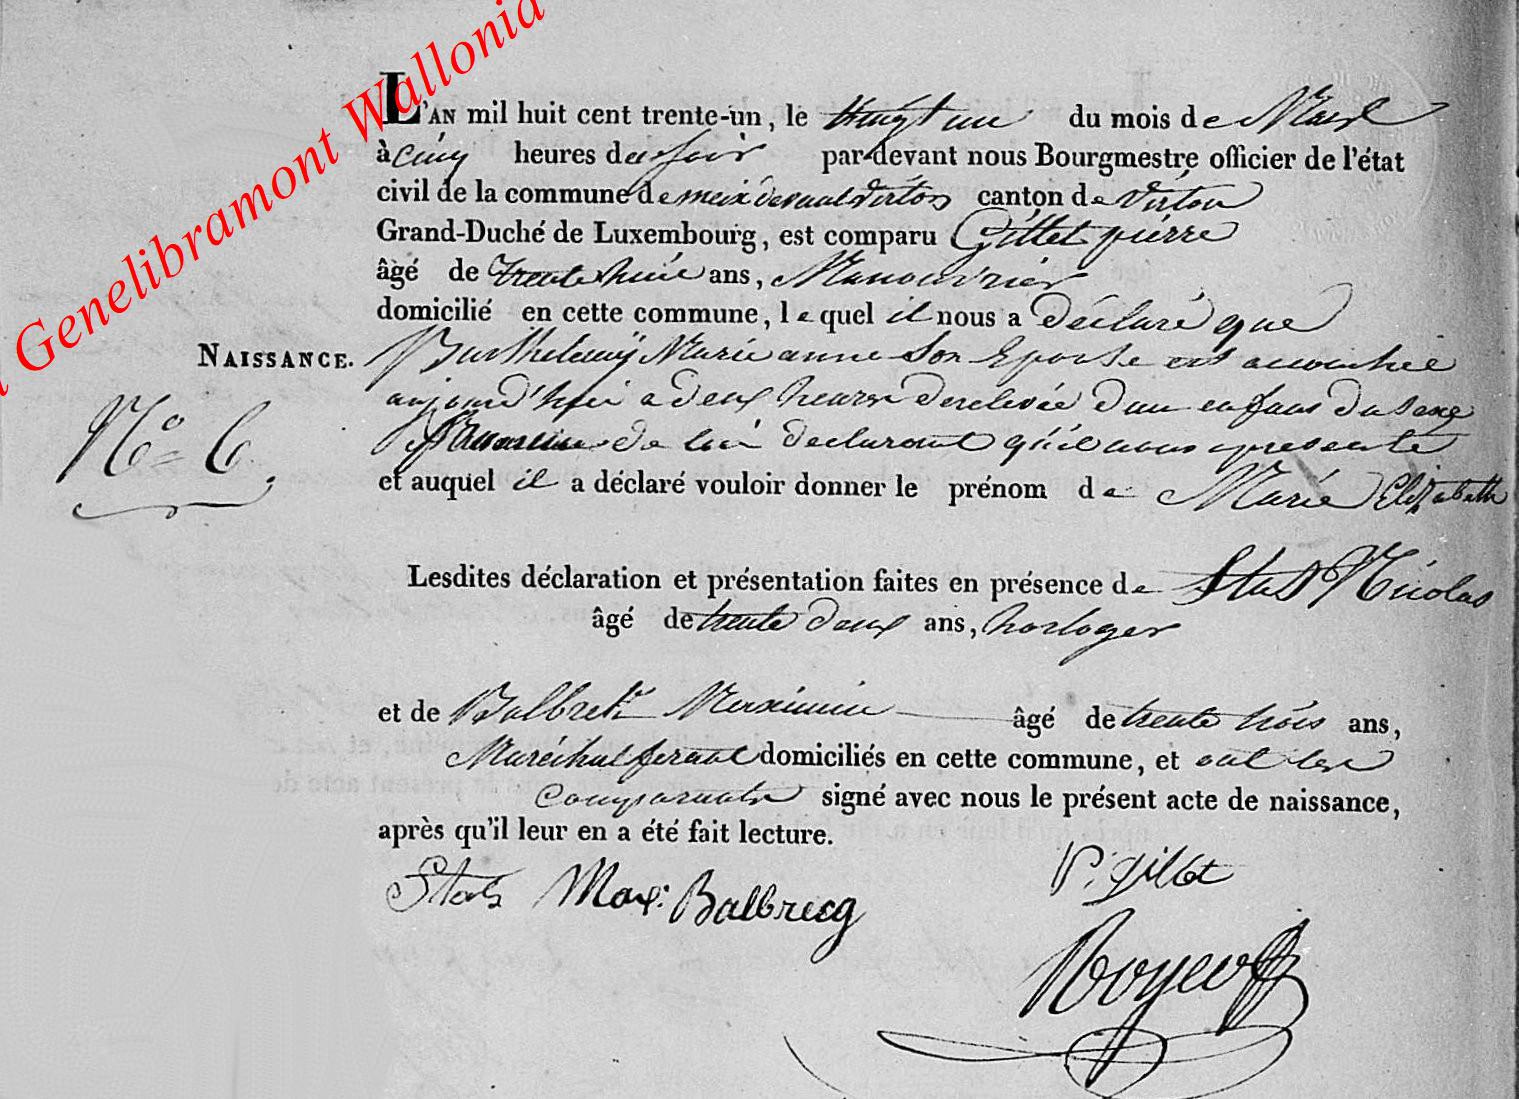 Genelibramont Wallonia
L'AN mil huit cent trente-un, le vingt un du mois de Mars
à cinq heures du soir par-devant nous Bourgmestre officier de l'état
civil de la commune de meix devant Virton canton de Virton
Grand-Duché de Luxembourg, est comparu Gillet pierre
âgé de trente huit ans, Manouvrier
domicilié en cette commune, lequel il nous a déclaré que
NAISSANCE.
Barthelemÿ Marie anne Son Epouse est accouchée
aujourd'hui a deux heures de relevée d'un enfant du sexe
N° 6.
de lui déclarant qu'il nous présente
et auquel il a déclaré vouloir donner le prénom de Marie Elizabeth
Lesdites déclaration et présentation faites en présence de Stas Nicolas
âgé de trente deux ans, horloger
et de Balbrek Maximin âgé de trente trois ans,
Maréchal ferant domiciliés en cette commune, et ont les
comparants signé avec nous le présent acte de naissance,
après qu'il leur en a été fait lecture.
Stas Max: Balbrecq P. gillet
Royer